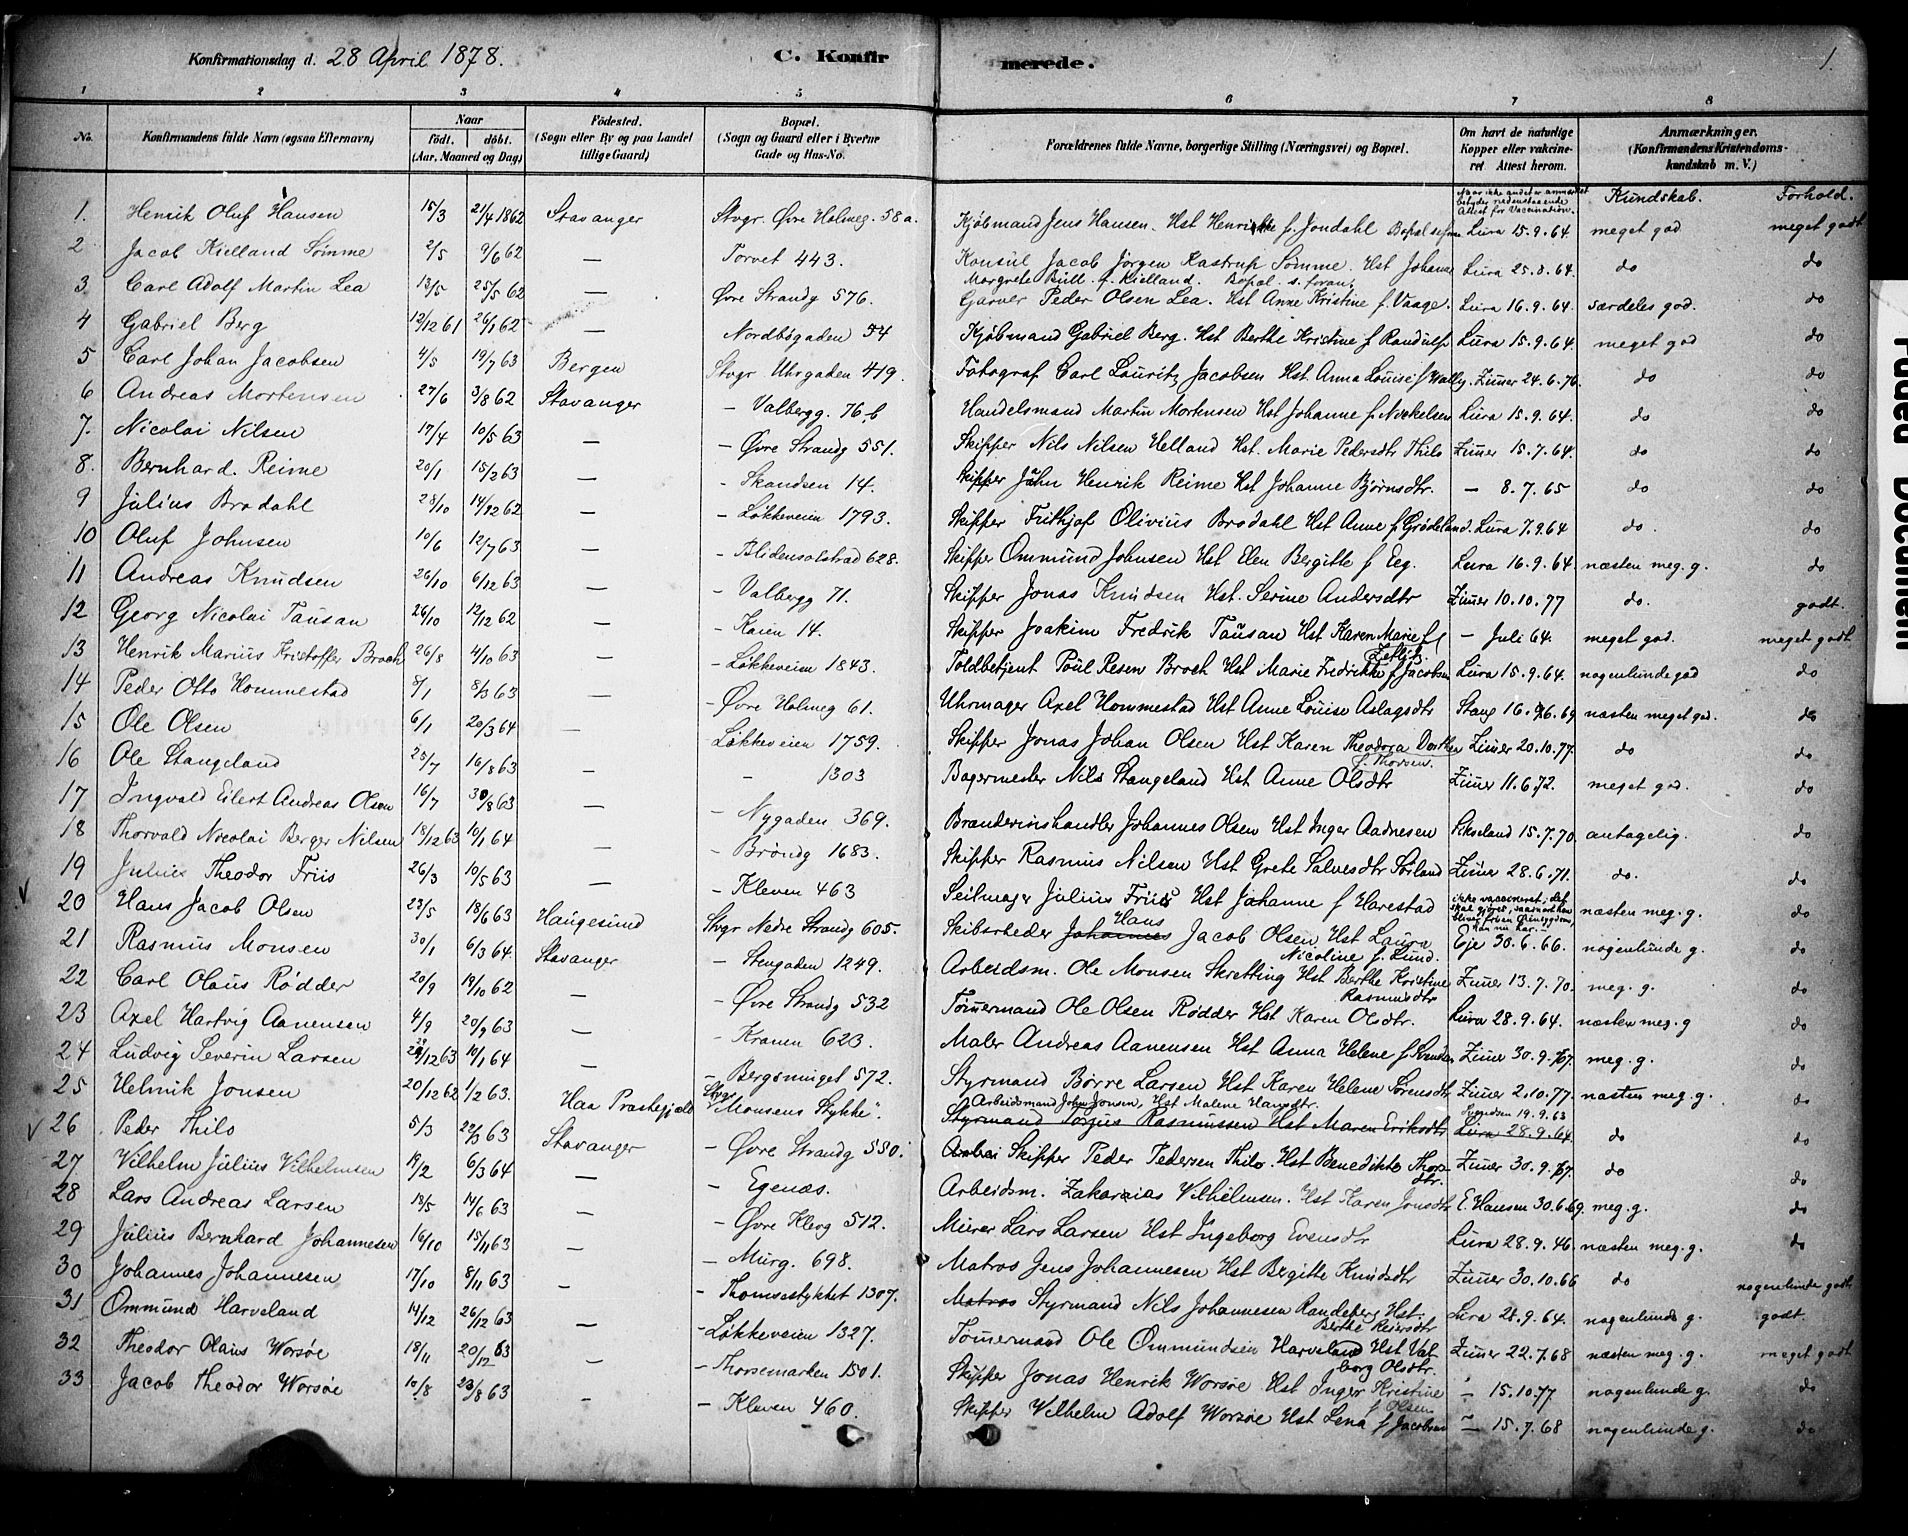 Konfirmationsdag d. 28 April 1878. C. Konfirmerede. 1.
1 2 3 4 5 6 7 8
No. Konfirmandens fulde Navn (ogsaa Efternavn) Naar födt. döbt. (Aar, Maaned og Dag) Födested. (Sogn eller By og paa Landet tillige Gaard) Bopæl. (Sogn og Gaard eller i Byerne Gade og Hus-No. Forældrenes fulde Navne, borgerlige Stilling (Næringsvei) og Bopæl. Om havt de naturlige Kopper eller vaccineret. Attest herom. Anmærkninger. (Konfirmandens Kristendomskundskab m. V.)
Naar ikke andet er anmærket betyder nedenstaaende Attest for Vaccination. Kundskab. Forhold.
1. Henrik Oluf Hansen 15/3 21/4 1862 Stavanger Stvgr. Øvre Holmeg. 58a. Kjøbmand Jens Hansen. Hst Henrikke f. Jondahl Lura 15.9.64. meget god meget godt
2 Jacob Kielland Sømme 2/5 9/6 62 — Torvet 443. Konsul Jacob Jörgen Kastrup Sømme. Hst Johanne Margrete Bull f. Kielland. Bopæl s. foran. Lura 25.8.64. do do
3 Carl Adolf Martin Lea 13/5 25/5 62 — Øvre Strandg 576. Garver Peder Olsen Lea. Hst Anne Kristine f. Vaage. Lura 16.9.64. særdeles god. do
4 Gabriel Berg 12/12 61 26/1 62 — Nordbøgaden 54 Kjøbmand Gabriel Berg. Hst Berthe Kristine f Randulf Lura 15.9.64. meget god do
5 Carl Johan Jacobsen 4/5 19/7 63 Bergen Stvgr Uhrgaden 419. Fotograf Carl Lauritz Jacobsen Hst. Anna Louise f Wally. Zimer 24.6.76. do do
6 Andreas Mortensen 27/6 3/8 62 Stavanger — Valbergg. 76,b Handelsmand Martin Mortensen Hst Johanne f. Lura 15.9.64. do do
7. Nicolai Nilsen 17/4 10/5 63 — — Øvre Strandg 551. Skipper Nils Nilsen Helland Hst. Marie Pedersdtr Thilo Zimer 15.7.64. do do
8. Bernhard Reime 20/1 15/2 63 — — Skandsen 14. Skipper John Henrik Reime Hst Johanne Bjørnsdtr. — 8.7.65 do do
9 Julius Brodahl 28/10 14/12 62 — — Løkkeveien 1793. Skipper Frithjof Olivius Brodahl Hst Anne f Grødeland. Lura 7.9.64 do. do
10 Oluf Johnsen 10/6 12/7 63 — — Blidensolstrad 628. Skipper Ommund Johnsen Hst Elen Bergitte f Eeg. Lura 16.9.64 næsten meg. g. do
11 Andreas Knudsen 26/10 6/12 63 — — Valbergg 71. Skipper Jonas Knudsen Hst. Serine Andersdtr Zimer 10.10.77 do. godt.
12 Georg Nicolai Tausan 26/10 12/12 62 — — Kaien 14. Skipper Joakim Fredrik Tausan Hst Karen Marie f Zetlitz. — Juli 64. meget god. meget godt
13 Henrik Marius Kristoffer Broch 26/8 4/10 63 — — Løkkeveien 1843. Toldbetjent Poul Resen Broch Hst Marie Fredrikke f Jacobsen Lura 15.9.64. nogenlunde god do
14 Peder Otto Hommestad 8/1 8/3 63 — — Øvre Holmeg 61. Uhrmager Axel Hommestad Hst Anne Louise Aslagsdtr Stang 16.6.69 næsten meget god. do
15 Ole Olsen 6/1 20/3 64 — Løkkeveien 1759. Skipper Jonas Johan Olsen Hst Karen Theodora Dorthea f. Thorsen. Zimer 20.10.77. do do
16 Ole Stangeland 25/7 16/8 63 — — 1303 Bagermester Nils Stangeland Hst Anne Olsdtr Zimer 11.6.72. meget god. do
17 Ingvald Eilert Andreas Olsen 16/7 30/8 63 — — Nygaden 369. Brændevinshandler Johannes Olsen Hst Inger Aadnesen Sikveland 15.7.70 antagelig. do
18 Thorvald Nicolai Berger Nilsen 18/12 63 10/1 64 — — Brøndg 1683. Skipper Rasmus Nilsen Hst Grete Salvesdtr Sørland Zimer 28.6.71. do. do
19 Julius Theodor Friis 26/3 10/5 63 — — Kleven 463 Seilmager Julius Friis Hst Johanne f Harestad ikke vaccineret; det skal gjøres, saasnart han bliver fri en Øiensygdom, han nu har. næsten meg. g. do
20 Hans Jacob Olsen 23/5 18/6 63 Haugesund Stvgr Nedre Strandg 605. Skibsrheder Johannes Hans Jacob Olsen Hst Laura Nicoline f. Lund. Eje 30.6.66. nogenlunde g. do
21 Rasmus Monsen 30/1 6/3 64 Stavanger — Stengaden 1249. Arbeidsm. Ole Monsen Skretting Hst Berthe Kristine Rasmusdtr Zimer 13.7.70. meg. g. do
22 Carl Olaus Rødder 20/9 19/10 62 — — Øvre Strandg 532 Tømmermand Ole Olsen Rødder Hst Karen Olsdtr. Lura 28.9.64. næsten meg. g do
23 Axel Hartvig Aanensen 4/9 20/9 63 — Kranen 623. Maler Andreas Aanensen Hst Anna Helene f Svendsen Zimer 30.9.67. meg. g. do
24 Ludvig Severin Larsen 29/12 63 10/1 64 — — Bergsmuget 572. Styrmand Børre Larsen Hst Karen Helene Sørensdtr Zimer 2.10.77. næsten meg. g. do
25 Helmik Jonsen 20/12 62 1/2 63. Haa Præstegjæld Stvgr "Monsens Stykke". Arbeidsmand John Jonsen, Hst Malene Hansdtr. Styrmand Torjus Rasmussen Hst Maren Eriksdtr Svendsen 19.9.63 Lura 28.9.64. do do
26 Peder Thilo 5/3 22/3 63 Stavanger — Øvre Strandg 550. Arbei Skipper Peder Pedersen Thilo. Hst Benedikte Thorsdtr. Zimer 30.9.67. do do
27 Vilhelm Julius Vilhelmsen 19/2 6/3 64 — — Egenæs. Arbeidsm. Zakarias Vilhelmsen. Hst Karen Jonsdtr E. Hansen 30.6.69. meg. g. do
28 Lars Andreas Larsen 18/5 14/6 63 — — Øvre Klevg 512. Murer Lars Larsen Hst Ingeborg Evensdtr Lura 28.9.46. næsten meg. g. do
29 Julius Bernhard Johannesen 16/10 15/11 63 — — Murg. 698. Matros Jens Johannesen Hst Birgitte Knudsdtr Zimer 30.10.66 do nogenlunde godt
30 Johannes Johannesen 17/10 8/11 63 — — Thomsestykket 1307. Matros Styrmand Nils Johannesen Randeberg Hst. Berthe Reiersdtr Lura 28.9.64. nogenlunde g. godt.
31 Ommund Harveland 14/12 26/12 63 — — Løkkeveien 1327. Tømmermand Ole Ommundsen Harveland Hst Valborg Olsdtr. Zimer 22.7.68 næsten meg. g. meget godt
32 Theodor Olaus Worsøe 18/11 20/12 63 — — Thorsemarken 1501. Skipper Jonas Henrik Worsøe Hst Inger Kristine f Olsen — 15.10.77 nogenlunde g. do
33 Jacob Theodor Worsøe 10/8 23/8 63 — — Kleven 460. Skipper Vilhelm Adolf Worsøe Hst Lena f Jacobsen — 15.7.68 nogenlunde g. do
Faded Document